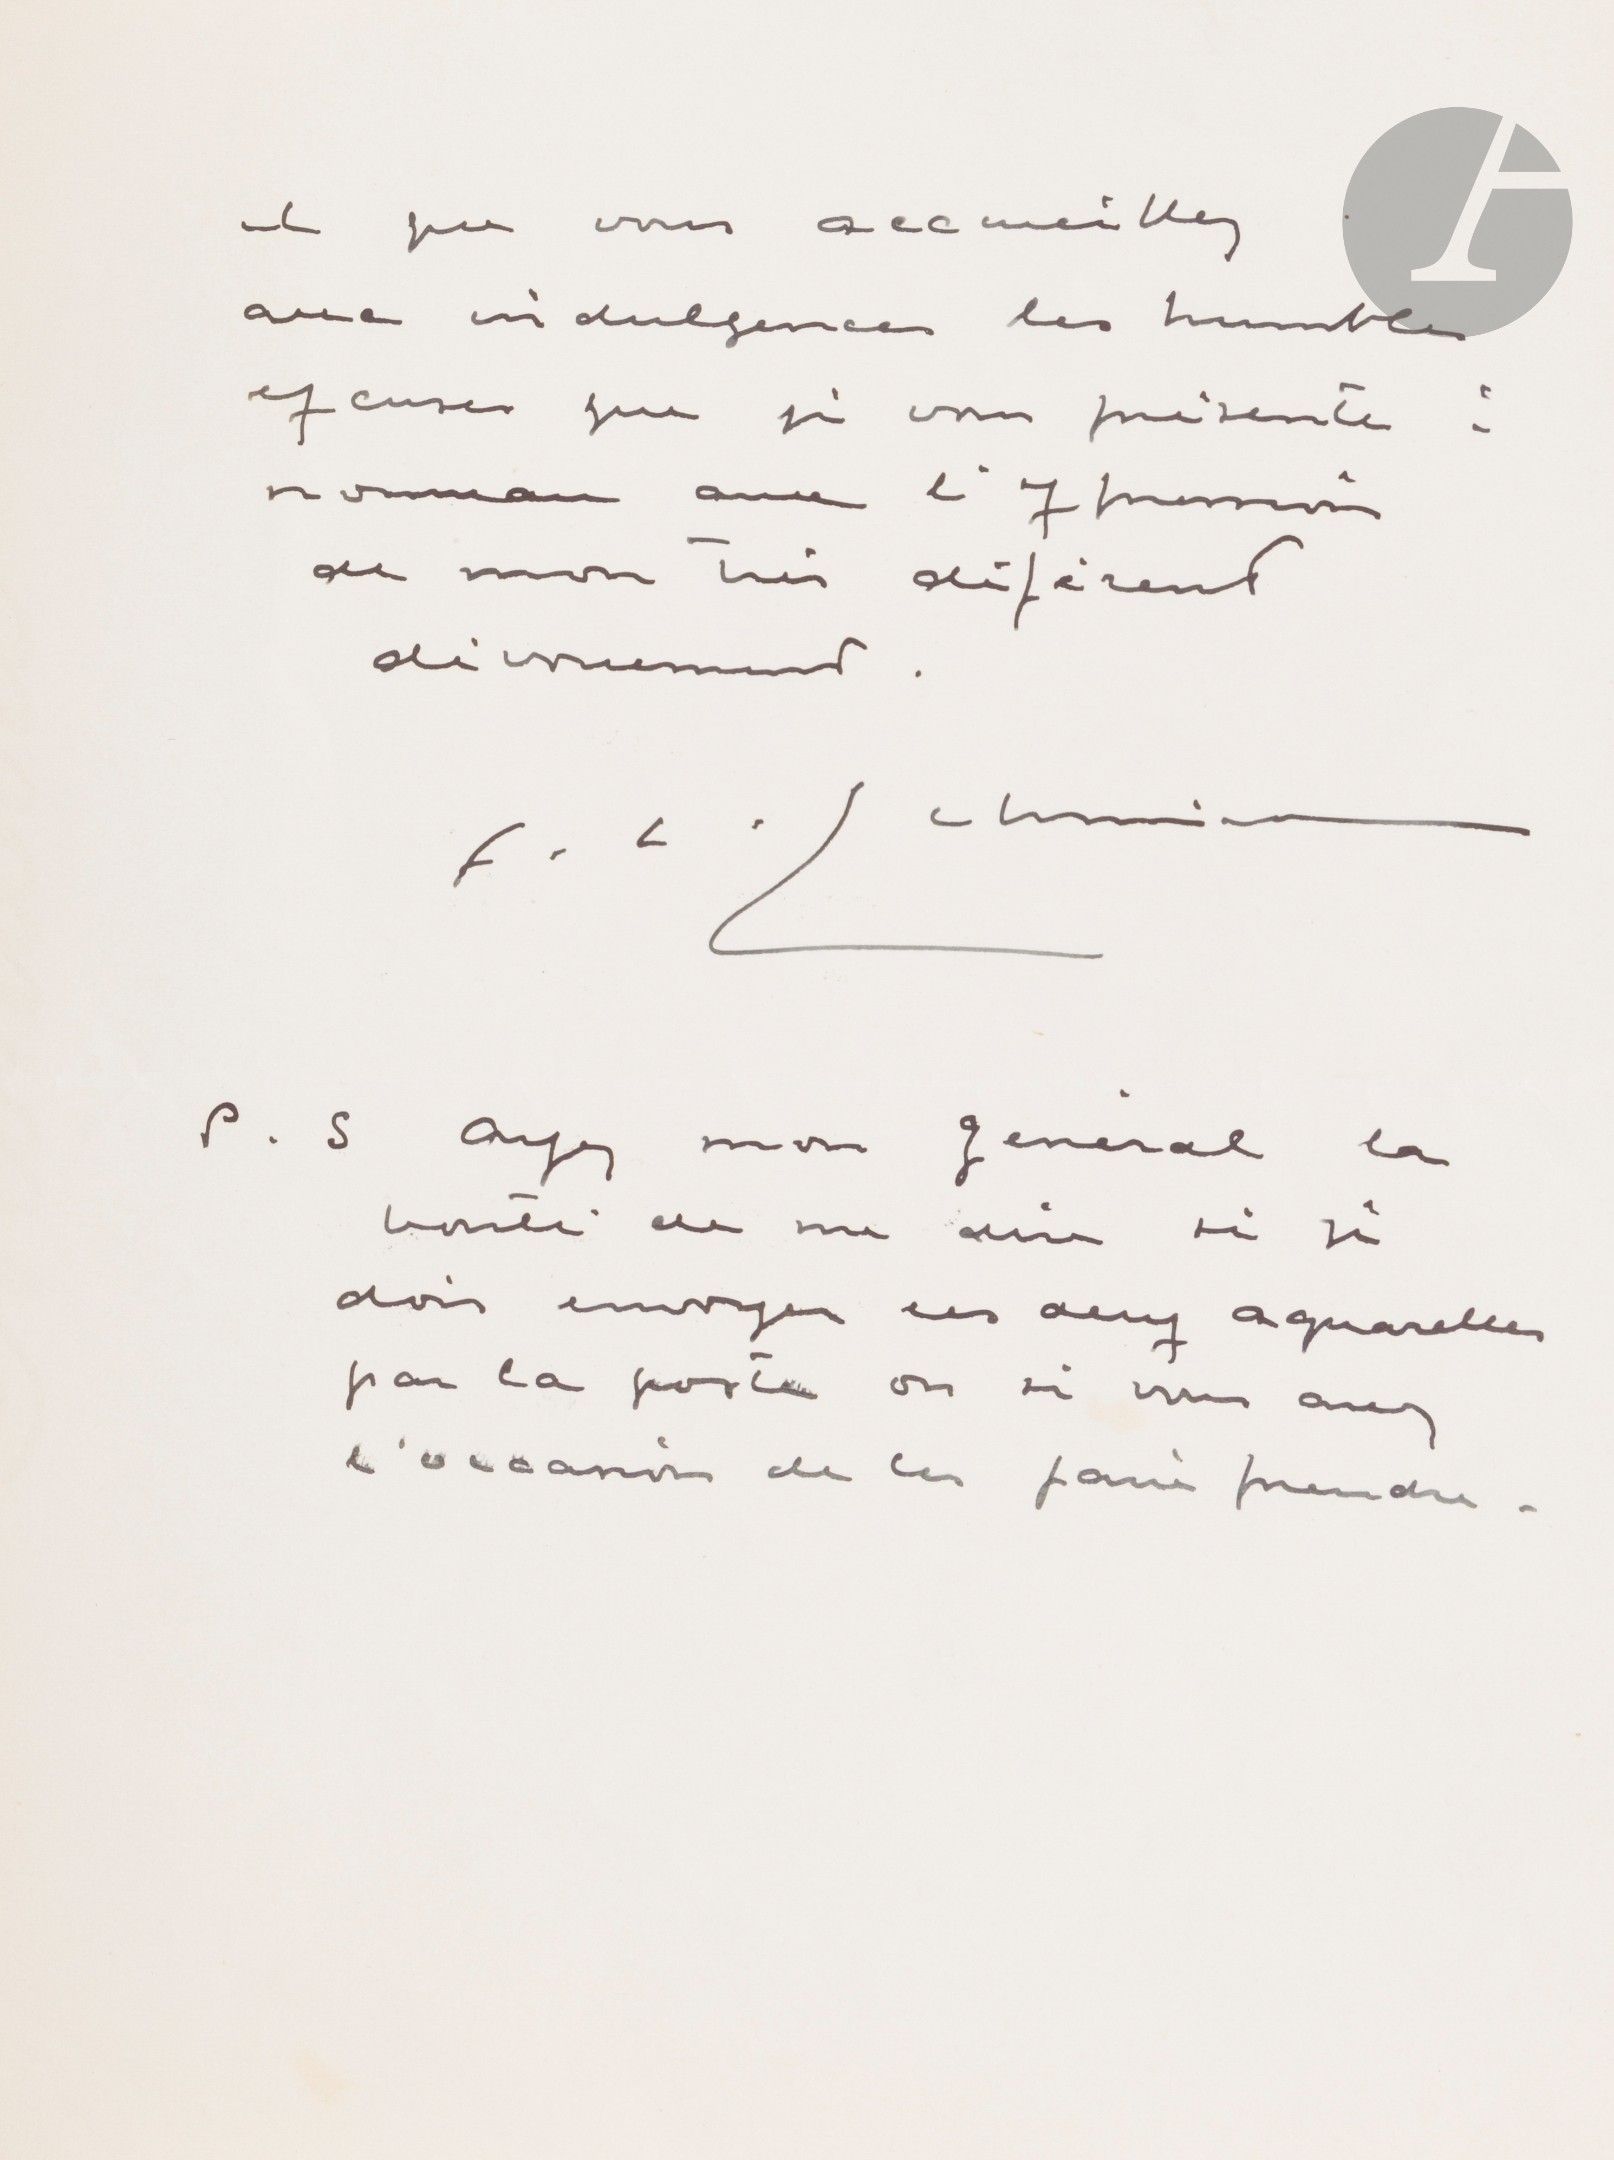 et que vous accueillez
avec indulgences les humbles
excuses que je vous présente à
nouveau avec l'expression
de mon très déférent
dévouement.
F. L. Schmied
P.S Ayez mon général la
bonté de me dire si je
dois envoyer ces deux aquarelles
par la poste ou si vous avez
l'occasion de les faire prendre.